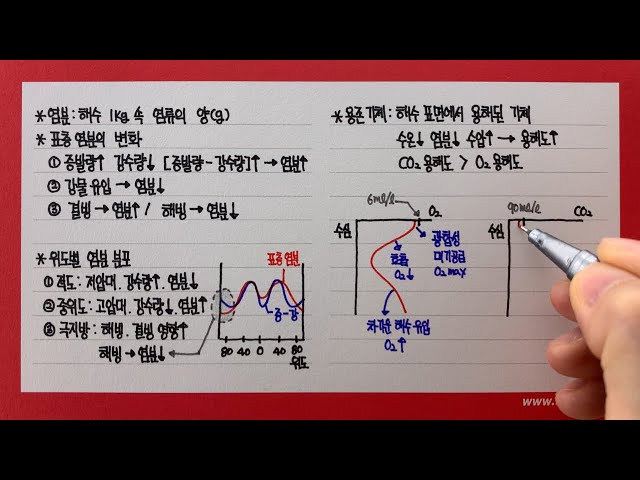 * 염분 : 해수 1kg 속 염류의 양(g)
* 표층 염분의 변화
① 증발량↑ 강수량↓ [증발량-강수량]↑ → 염분↑
② 강물 유입 → 염분↓
③ 결빙 → 염분↑ / 해빙 → 염분↓
* 위도별 염분 분포
① 적도 : 저압대. 강수량↑. 염분↓
② 중위도 : 고압대. 강수량↓. 염분↑
③ 극지방 : 해빙. 결빙 영향↑
해빙 → 염분↓
표층 염분
증-강
80 40 0 40 80
위도
* 용존기체 : 해수 표면에서 용해된 기체
수온↓ 염분↓ 수압↑ → 용해도↑
CO₂ 용해도 > O₂ 용해도
6ml/l
O₂
수심
광합성
대기공급
O₂ max
호흡
O₂↓
차가운 해수 유입
O₂↑
90ml/l
CO₂
수심
www.